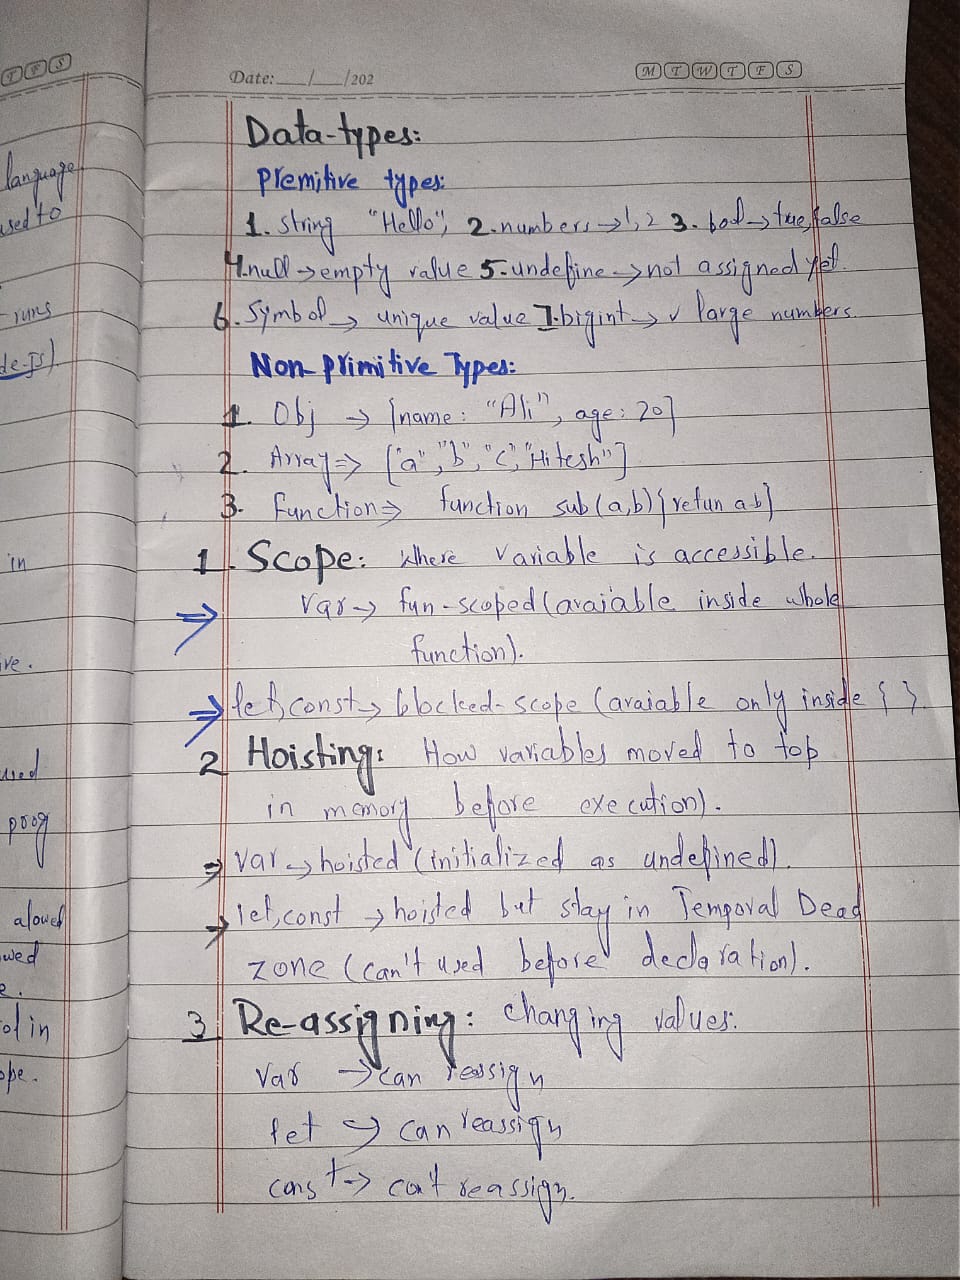 T F S
language
used to
runs
de-js).
in
ive.
used
poog
alowed
owed
e.
ol in
ope.
Date:___/___/202
M T W T F S
Data-types:
Premitive types:
1. String "Hello", 2. numbers → 1, 2 3. bool → true, false
4. null → empty value 5. undefine → not assigned yet.
6. Symbol → unique value 7. bigint → v large numbers.
Non-primitive Types:
1. Obj → {name: "Ali", age: 20}
2. Array => ["a", "b", "c", "Hitesh"]
3. Function => function sub(a,b){retun a-b}
1. Scope: Where variable is accessible.
var → fun-scoped (avaiable inside whole
function).
let, const → blocked-scope (avaiable only inside { }.
2 Hoisting: How variables moved to top
in memory before execution).
var → hoisted (initialized as undefined).
let, const → hoisted but stay in Temporal Dead
zone (can't used before declaration).
3 Re-assigning: changing values.
var → can reassign
let → can reassign
const → can't reassign.